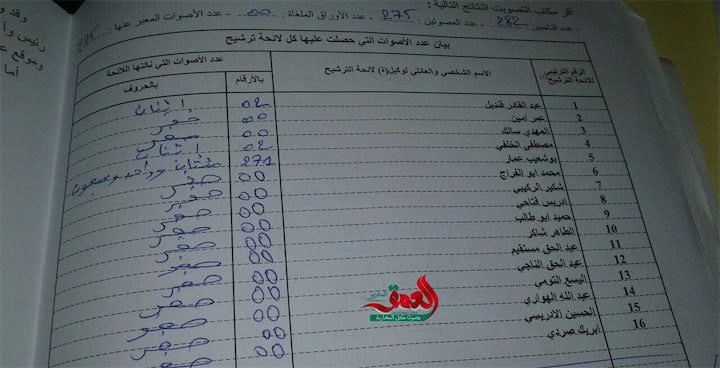 قر مكتب التصويت النتائج التالية :
- عدد الناخبين : 282 - عدد المصوتين : 275 - عدد الأوراق الملغاة : 00 - عدد الأصوات المعبر عنها : 275
بيان عدد الأصوات التي حصلت عليها كل لائحة ترشيح
الرقم الترتيبي للائحة الترشيح الاسم الشخصي والعائلي لوكيل(ة) لائحة الترشيح عدد الأصوات التي نالتها اللائحة
بالأرقام بالحروف
1 عبد القادر قنديل 02 إثنان
2 عمر امين 00 صفر
3 المهدي سالك 00 صفر
4 مصطفى الخلفي 02 اثنان
5 بوشعيب عمار 271 مئتان وواحد وسبعون
6 محمد ابو الفراج 00 صفر
7 شكير الركيبي 00 صفر
8 ادريس فتاحي 00 صفر
9 حميد ابو طالب 00 صفر
10 الطاهر شاكر 00 صفر
11 عبد الحق مستقيم 00 صفر
12 عبد الحق الناجي 00 صفر
13 اليسع التومي 00 صفر
14 عبد الله الهواري 00 صفر
15 الحسين الادريسي 00 صفر
16 ابريك صردي 00 صفر
وقد و
رئيس وأ
وموقع ع
أما
العمق
المغربي